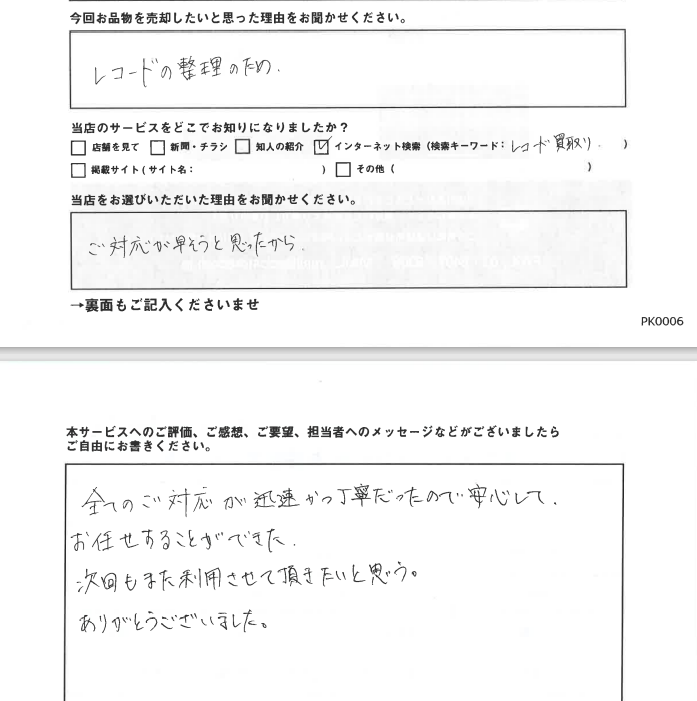 今回お品物を売却したいと思った理由をお聞かせください。
レコードの整理のため.
当店のサービスをどこでお知りになりましたか？
店舗を見て 新聞・チラシ 知人の紹介 インターネット検索（検索キーワード：レコード買取り. ）
掲載サイト（サイト名： ） その他（ ）
当店をお選びいただいた理由をお聞かせください。
ご対応が早そうと思ったから.
→裏面もご記入くださいませ
PK0006
本サービスへのご評価、ご感想、ご要望、担当者へのメッセージなどがございましたら
ご自由にお書きください。
全てのご対応が迅速かつ丁寧だったので安心して.
お任せすることができた.
次回もまた利用させて頂きたいと思う。
ありがとうございました。